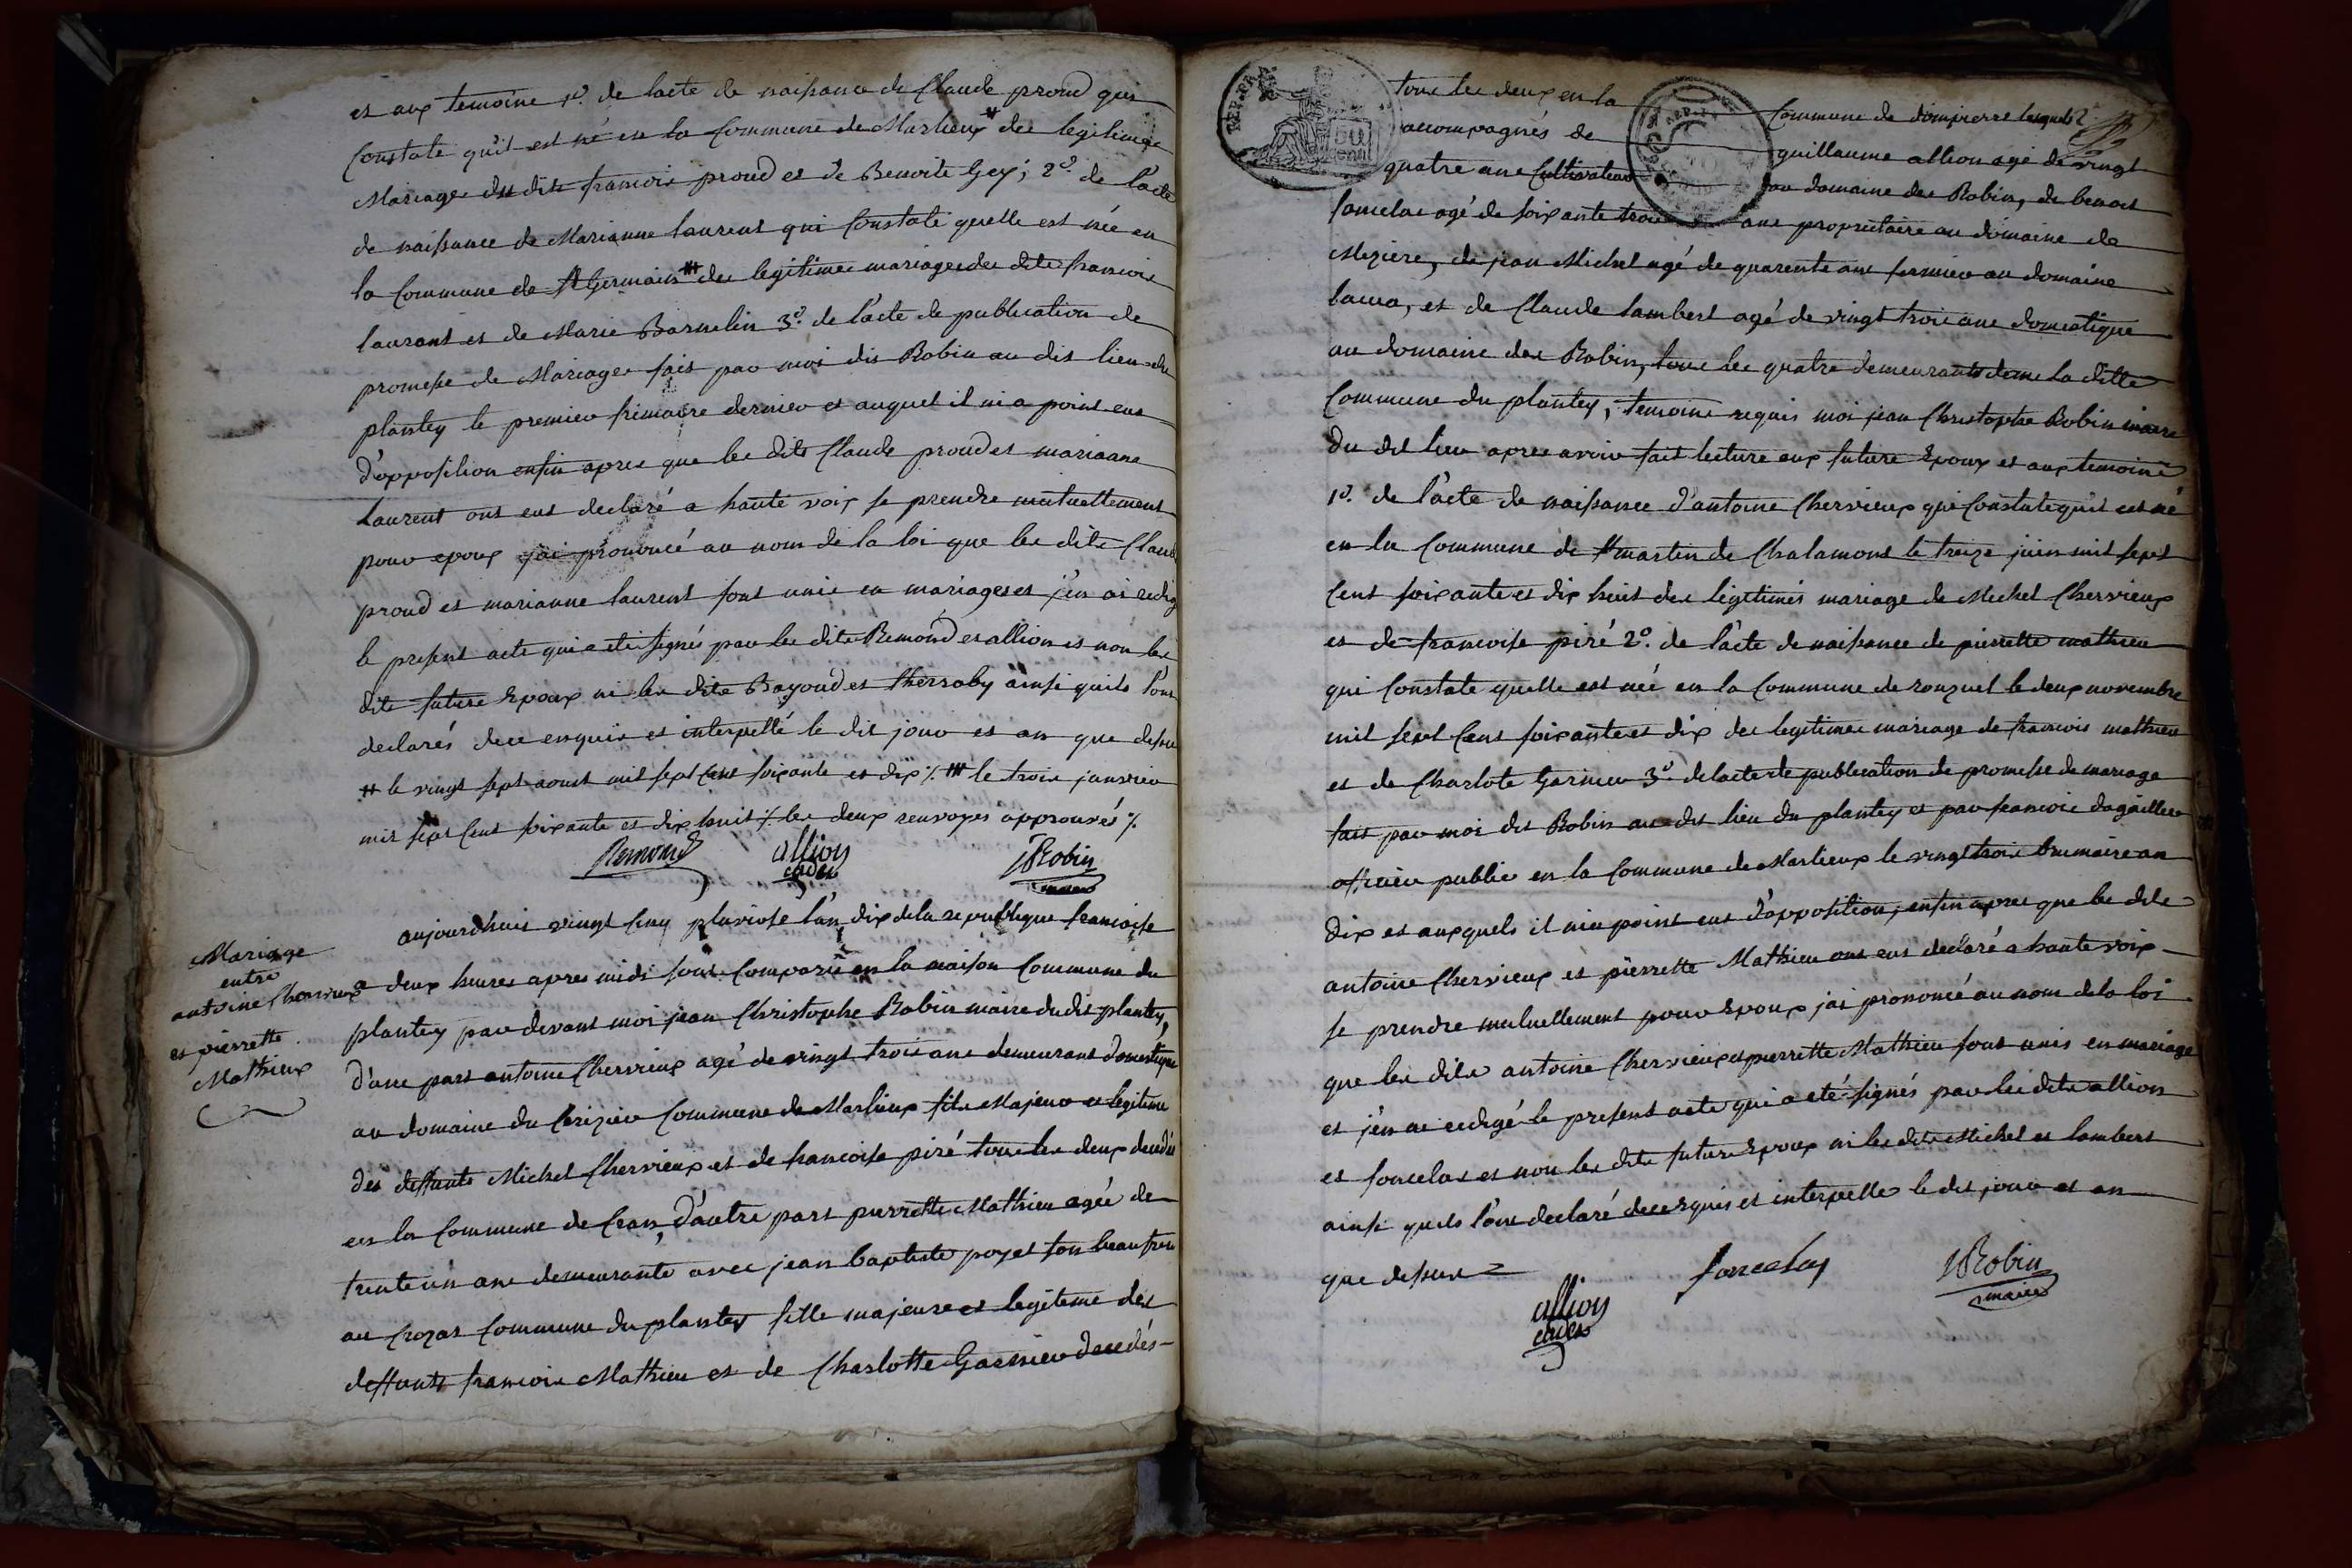 et aux temoins 1º. de l'acte de naissance de Claude proud qui
Constate qu'il est né en la Commune de Marlieux # des legitimes
Mariage du dits francois proud et de Benoite Gey; 2º. de l'acte
de naissance de Marianne laurent qui Constate quelle est née en
la Commune de St Germain ## des legitimes mariages des dits francois
laurant et de Marie Barnelin 3º. de l'acte de publication de
promesse de Mariage fais par moi dis Robin au dis lieu du
plantey le premier frimaire dernier et auquel il ni a point eus
d'opposition enfin apres que les dits Claude proud et marianne
Laurent ons eus declaré a haute voix se prendre mutuellement
pour epoux j'ai prononcé au nom de la loi que les dits Claude
proud et marianne laurent sont unis en mariages et j'en ai redig
le present acte qui a eté signés par les dits Remond et allion et non les
dits future Epoux ni les dits Bayoud et Cherraby ainsi quils l'ons
declarés dece enquis et interpellé le dis jour et an que dessus
# le vingt sept aoust mil sept Cent soixante et dix ./. ## le trois janvier
mil sept Cent soixante et dix huit ./. les deux renvoyes approuvés ./.
Remond allion cadet JRobin maire
Mariage
entre
antoine Chervieux
et pierrette
Mathieux
aujourdhuis vingt Cinq pluviose l'an dix de la republique francoise
a deux heures apres midi sont Comparus en la maison Commune du
plantey par devant moi jean Christophe Robin maire du dis plantey,
d'une pars antoine Chervieux agé de vingt trois ans demeurant domestique
au domaine du Cerizier Commune de Marlieux fils Majeur et legitime
des deffunts Michel Chervieux et de francoise piré tous les deux decedés
en la Commune de Crans, d'autre pars pierrette Mathieu agée de
trente un ans demeurante avec jean baptiste poyet son beau frere
au Crozat Commune du plantey fille majeure et legitime des
deffunts francois Mathieu et de Charlotte Garnier decedés
tous les deux en la Commune de dompierre lesquels
accompagnés de guillaume allion agé de vingt
quatre ans Cultivateur au domaine des Robin, de benoit
foncelas agé de soixante trois ans proprietaire au domaine de
Meziere, de jean Michel agé de quarente ans fermier au domaine
, et de Claude lambert agé de vingt trois ans domestique
au domaine des Robin, tous les quatre demeurants dans la ditte
Commune du plantey, temoins requis moi jean Christophe Robin maire
du dit lieu apres avoir fait lecture aux future Epoux et aux temoins
1º. de l'acte de naissance d'antoine Chervieux qui Constate qu'il est né
en la Commune de St martin de Chalamont le treize juin mil sept
Cent soixante et dix huit des legitimes mariage de Michel Chervieux
et de francoise piré 2º. de l'acte de naissance de pierrette mathieu
qui Constate quelle est née en la Commune de ronzuel le deux novembre
mil sept Cent soixante et dix des legitimes mariage de francois mathieu
et de Charlote Garnier 3º. de lacte de publication de promesse de mariage
fais par moi dis Robin au dis lieu du plantey et par francois dagaillier
officier public en la Commune de Marlieux le vingt trois brumaire an
dix et auxquels il nia point eus d'opposition, enfin apres que les dits
antoine Chervieux et pierrette Mathieu ons eus declaré a haute voix
se prendre mutuellement pour Epoux jai prononcé au nom de la loi
que les dits antoine Chervieux et pierrette Mathieu sont unis en mariage
et j'en ai redigé le present acte qui a eté signés par les dits allion
et foncelas et non les dits future Epoux ni les dits Michel et lambert
ainsi quils l'ons declaré dece enquis et interpellé le dis jour et an
que dessus
allion cadet foncelas JRobin maire